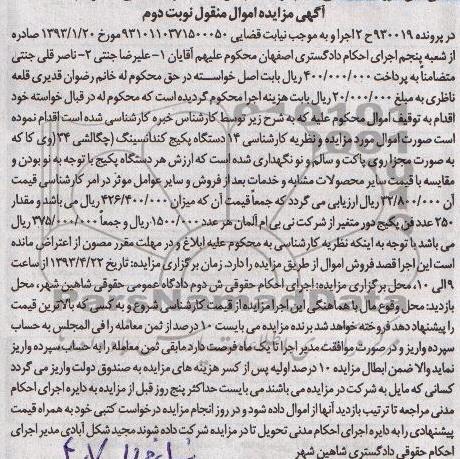 آگهی مزایده اموال منقول نوبت دوم
در پرونده ۹۳۰۰۱۹ح ۲ اجرا و به موجب نیابت قضایی ۹۳۱۰۱۱۰۳۷۱۵۰۰۰۵۰ مورخ ۱۳۹۳/۱/۲۰ صادره
از شعبه پنجم اجرای احکام دادگستری اصفهان محکوم علیهم آقایان ۱-علیرضا جنتی ۲-ناصر قلی جنتی
متضامنا به پرداخت ۴۰۰/۰۰۰/۰۰۰ ریال بابت اصل خواسته در حق محکوم له خانم رضوان قدیری قلعه
ناظری به مبلغ ۲۰/۰۰۰/۰۰۰ ریال بابت هزینه اجرا محکوم گردیده است که محکوم له در قبال خواسته خود
اقدام به توقیف اموال محکوم علیه که به شرح زیر توسط کارشناس خبره کارشناسی شده است اقدام نموده
است صورت اموال مورد مزایده و نظریه کارشناسی ۱۳ دستگاه پکیج کندانسینگ (چگالشی ۲۴)وی کا که
به صورت مجزا روی پاکت و سالم و نو نگهداری شده است که ارزش هر دستگاه پکیج با توجه به نو بودن و
مقایسه با قیمت سایر محصولات مشابه و خدمات بعد از فروش و سایر عوامل موثر در امر کارشناسی قیمت
آن ۳۲/۸۰۰/۰۰۰ ریال ارزیابی می گردد که جمعا قیمت آن که میزان ۴۲۶/۴۰۰/۰۰۰ ریال می باشد و مقدار
۲۵۰ عدد فن پکیج دور متغیر از شرکت نی بی ام آلمان هر عدد ۱۵۰۰/۰۰۰ ریال و جمعا ۳۷۵/۰۰۰/۰۰۰ ریال
می باشد با توجه به اینکه نظریه کارشناسی به محکوم علیه ابلاغ و در مهلت مقرر مصون از اعتراض مانده
است این اجرا قصد فروش اموال از طریق مزایده را دارد. زمان برگزاری مزایده: تاریخ ۱۳۹۳/۴/۲۲ از ساعت
۹ الی ۱۰، محل برگزاری مزایده: اجرای احکام حقوقی ش دوم دادگاه عمومی حقوقی شاهین شهر، محل
بازدید: محل وقوع مال با هماهنگی این اجرا مزایده از قیمت کارشناسی شروع و به کسی که بالاترین قیمت
را پیشنهاد دهد فروخته خواهد شد برنده مزایده می بایست ۱۰ درصد از ثمن معامله را فی المجلس به حساب
سپرده واریز و در صورت موافقت مدیر اجرا تا یک ماه فرصت دارد مابقی ثمن معامله را به حساب سپرده واریز
نماید والا ضمن ابطال مزایده ۱۰ درصد اولیه پس از کسر هزینه های مزایده به صندوق دولت واریز می گردد
کسانی که مایل به شرکت در مزایده می باشند می بایست حداکثر پنج روز قبل از مزایده به دایره اجرای احکام
مدنی مراجعه تا ترتیب بازدید آنها از اموال داده شود و در روز انجام مزایده درخواست کتبی خود به همراه قیمت
پیشنهادی را به دایره اجرای احکام مدنی تحویل تا در مزایده شرکت داده شوند مجید شکل آبادی مدیر اجرای
احکام حقوقی دادگستری شاهین شهر